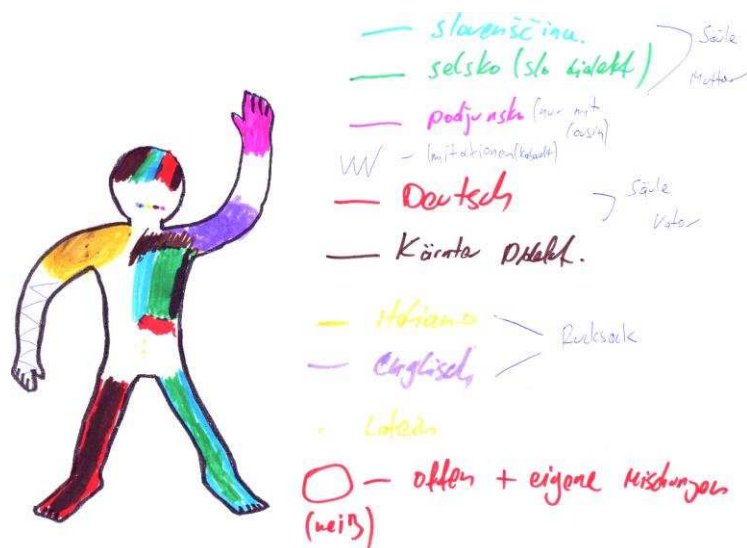 slovenščina.
selsko (slo dialekt)
Säule
Mutter
podjunsko (nur mit
cousin)
Imitationen (Kabarett)
Deutsch
Säule
Vater
Kärntner Dialekt.
Italiano
Englisch
Rucksack
Latein
offen + eigene Mischungen
(weiß)